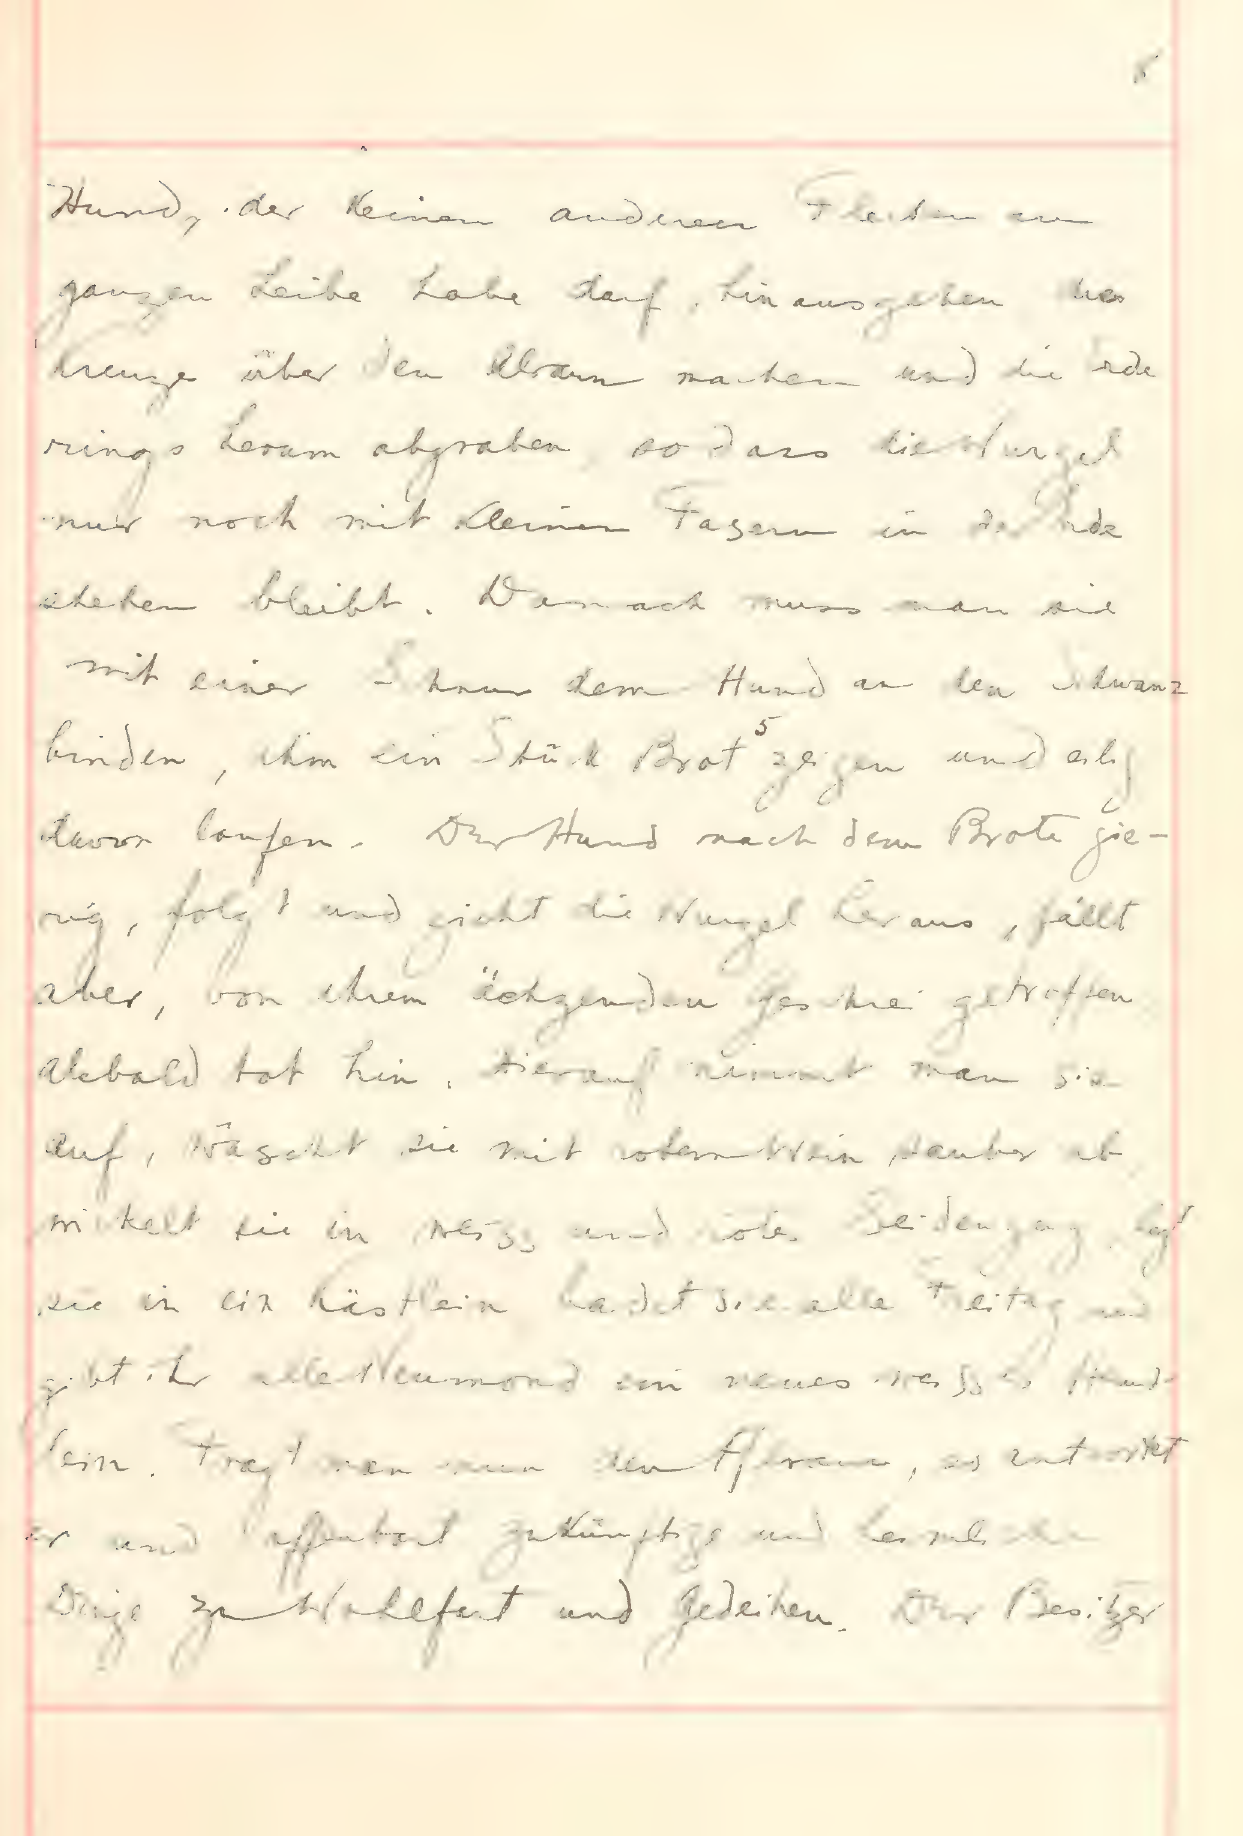 8
Hund, der keinen anderen Flecken am
ganzen Leibe habe darf, hinausgehen drei
Kreuze über den Alraun machen und die Erde
rings herum abgraben so dass die Wurzel
nur noch mit kleinen Fasern in der Erde
stehen bleibt. Danach muss man sie
mit einer Schnur dem Hund an den Schwanz
binden, ihm ein Stück Brot 5 zeigen und eilig
davon laufen. Der Hund nach dem Brote gie-
rig, folgt und zieht die Wurzel heraus, fällt
aber, von ihrem ächzenden Geschrei getroffen
alsbald tot hin. Hierauf nimmt man sie
auf, wäscht sie mit rotem Wein sauber ab
wickelt sie in weiss und rotes Seidenzeug, legt
sie in ein Kästlein badet sie alle Freitag und
gibt ihr alle Neumond ein neues weisses Hemd-
lein. Fragt man nun den Alraun, so antwortet
er und offenbart zukünftige und heimliche
Dinge zu Wohlfart und Gedeihen. Der Besitzer